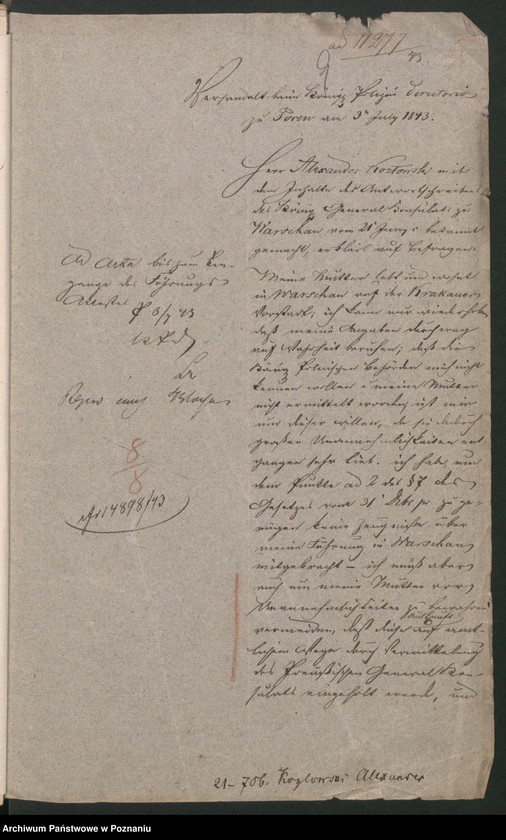 ad 11277
43.
Verhandelt beim Königl. Polizei Directorio
zu Posen am 3n July 1843.
Herr Alexander Kozlowski mit
dem Inhalte des Antwortschreibens
des Königl. General Konsulats zu
Warschau vom 21 Juny c. bekannt
gemacht, erklärt auf Befragen:
Meine Mutter lebt und wohnt
in Warschau auf der Krakauer
Vorstadt; ich kann nur wiederholen
daß meine Angaben durchweg
auf Wahrheit beruhen; daß die
Königl. Polnischen Behörden mich nicht
kennen wollen u meine Mutter
nicht ermittelt worden, ist mir
um dieser willen, da sie dadurch
großen Unannehmlichkeiten ent
gangen sehr lieb. ich habe, um
dem Punkte ad 2 des § 7 des
Gesetzes vom 31' Dbr pr zu ge-
nügen keine Zeugnisse über
meine Führung in Warschau
mitgebracht – ich muß aber
auch um meine Mutter vor
Unannehmlichkeiten zu bewahren
vermeiden, daß diese Auskunft auf amt-
lichem Wege durch Vermittelung
des Preußischen General Kon-
sulats eingeholt werde, und
Ad Acta bis zum Ein-
gange des Führungs
Attestes
P 3/7 43
8/8
14898/43
21-706. Kozlowski Alexander
Archiwum Państwowe w Poznaniu